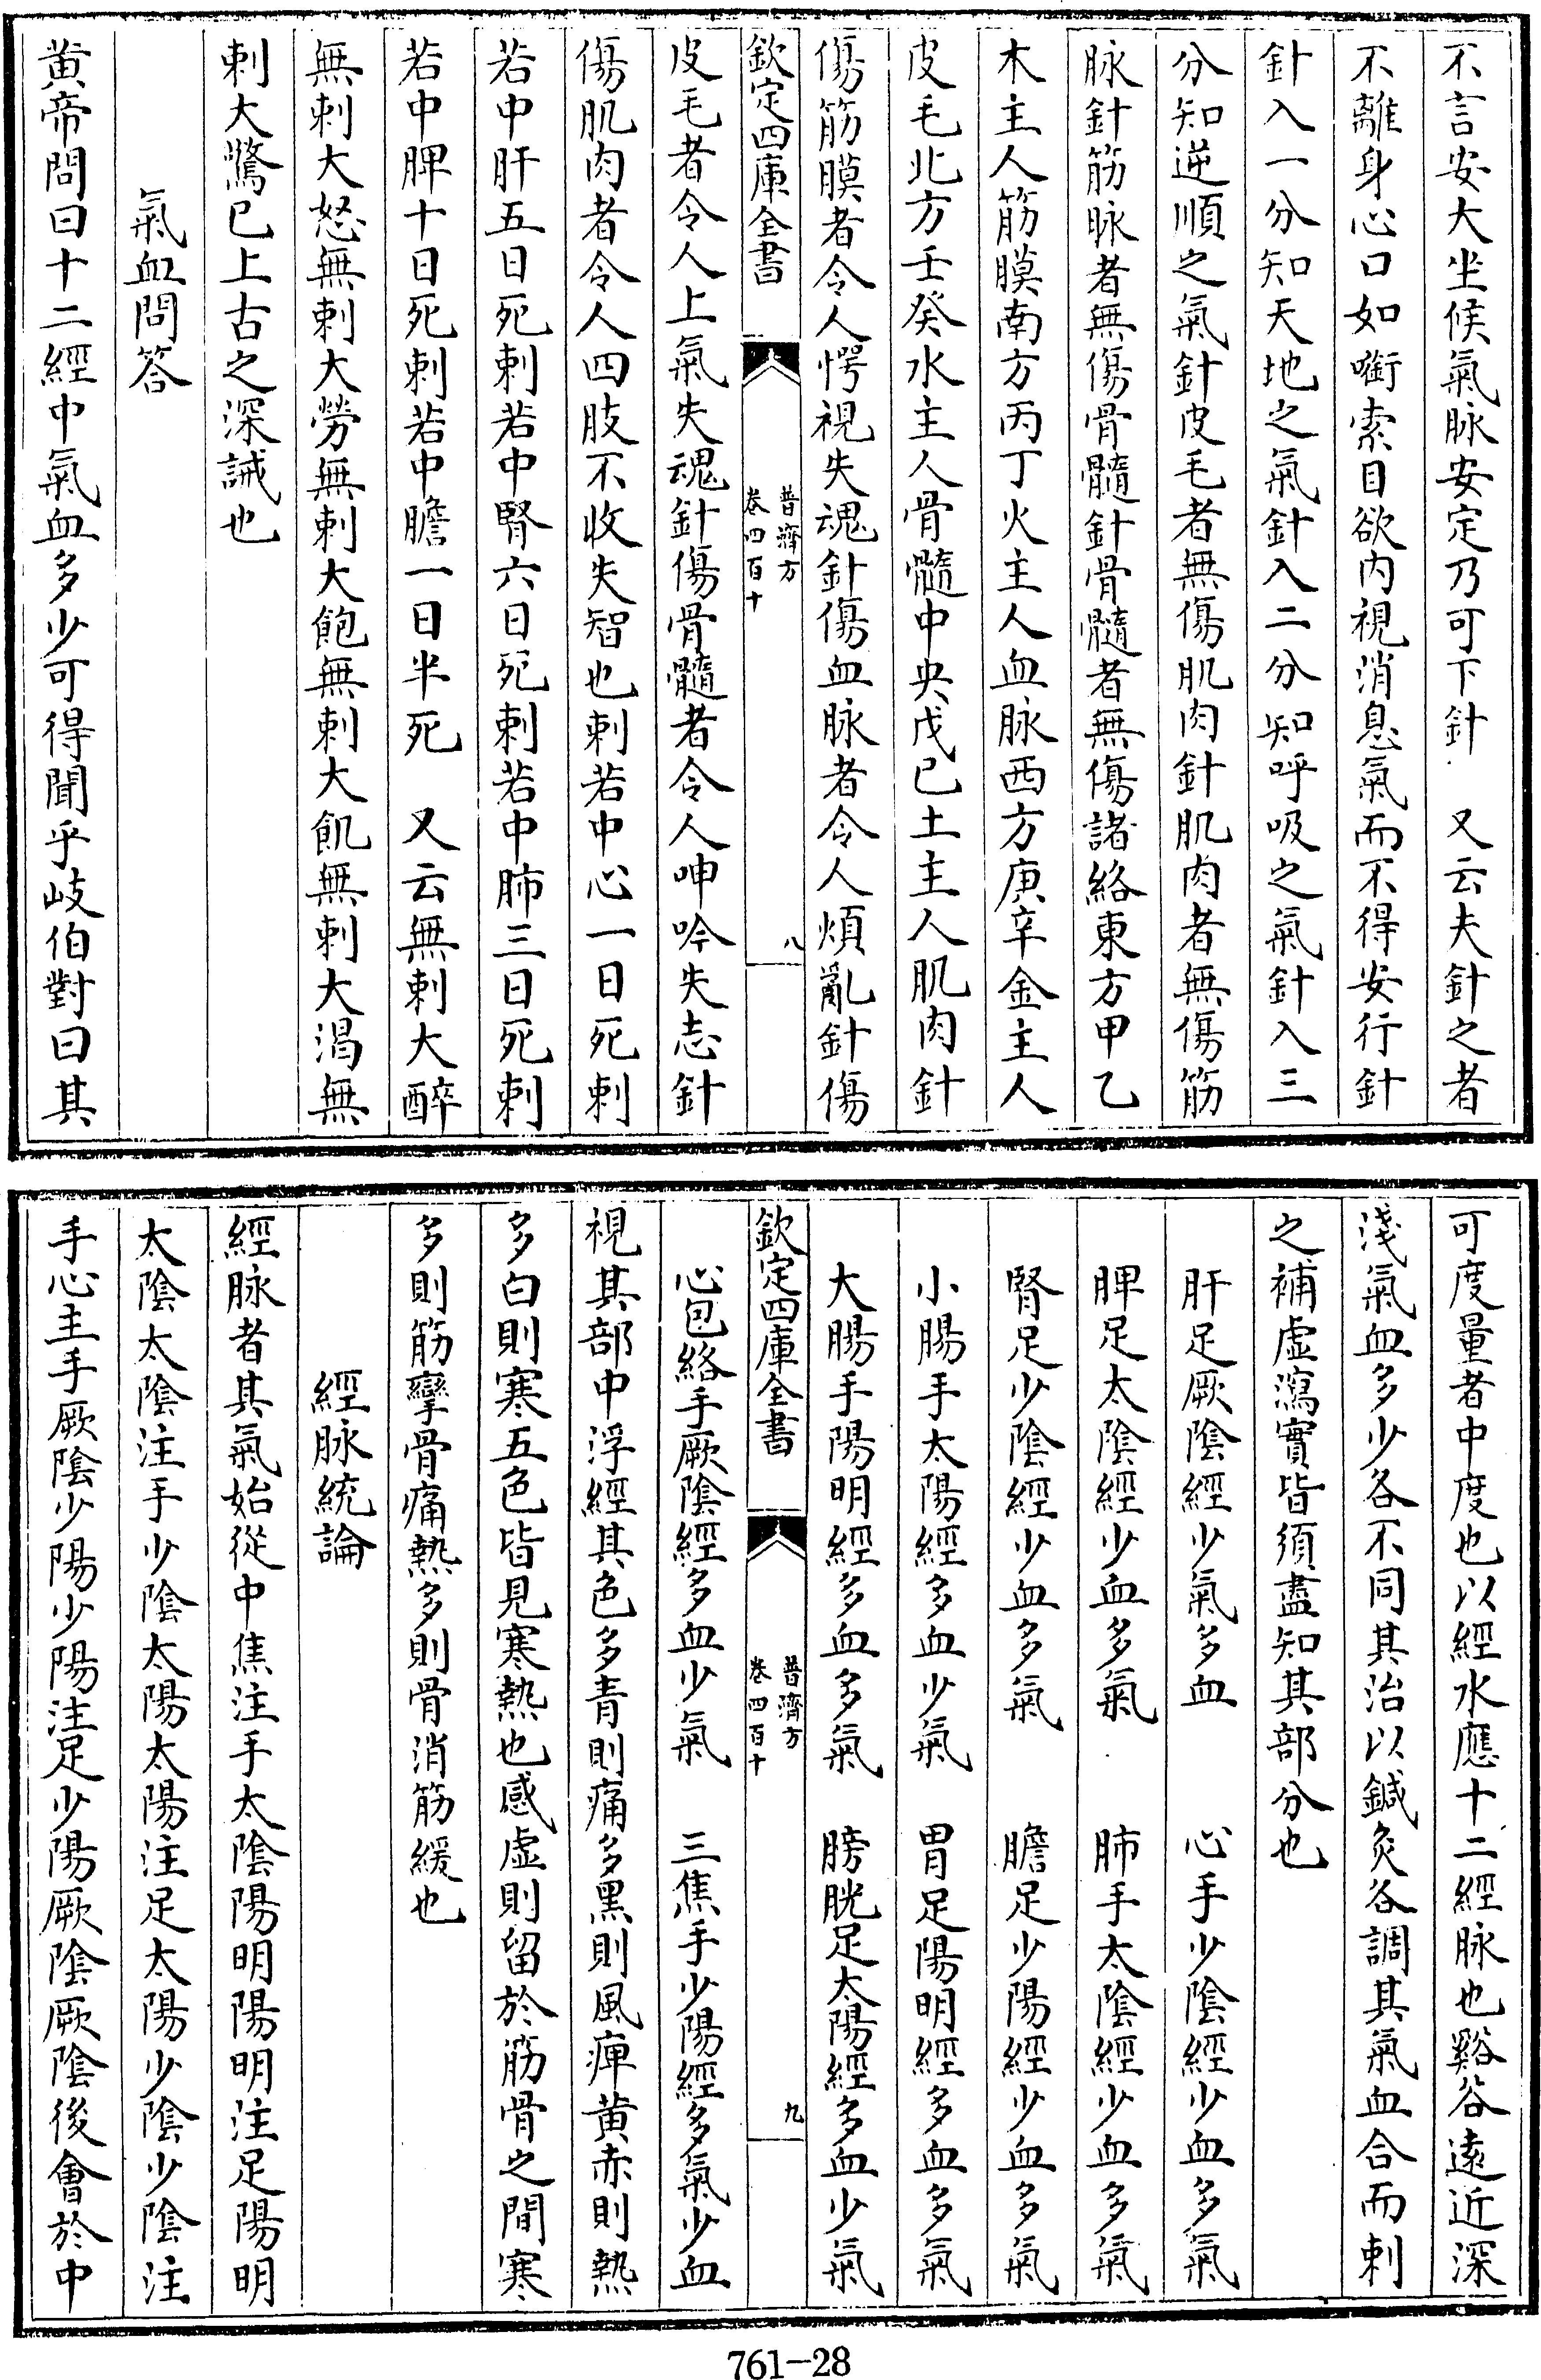 不言安大坐候氣脉安定乃可下針　又云夫針之者
不離身心口如㗸索目欲内視消息氣而不得安行針
針入一分知天地之氣針入二分知呼吸之氣針入三
分知逆順之氣針皮毛者無傷肌肉針肌肉者無傷筋
脉針筋脉者無傷骨髓針骨髓者無傷諸絡東方甲乙
木主人筋膜南方丙丁火主人血脉西方庚辛金主人
皮毛北方壬癸水主人骨髓中央戊已土主人肌肉針
傷筋膜者令人愕視失魂針傷血脉者令人煩亂針傷
欽定四庫全書
普濟方
卷四百十
八
皮毛者令人上氣失魂針傷骨髓者令人呻吟失志針
傷肌肉者令人四肢不收失智也刺若中心一日死刺
若中肝五日死刺若中腎六日死刺若中肺三日死刺
若中脾十日死刺若中膽一日半死　又云無刺大醉
無刺大怒無刺大勞無刺大飽無刺大飢無刺大渴無
刺大驚已上古之深誡也
氣血問答
黄帝問曰十二經中氣血多少可得聞乎岐伯對曰其
可度量者中度也以經水應十二經脉也谿谷遠近深
淺氣血多少各不同其治以鍼灸各調其氣血合而刺
之補虛瀉實皆須盡知其部分也
肝足厥陰經少氣多血　心手少陰經少血多氣
脾足太陰經少血多氣　肺手太陰經少血多氣
腎足少陰經少血多氣　膽足少陽經少血多氣
小腸手太陽經多血少氣　胃足陽明經多血多氣
大腸手陽明經多血多氣　膀胱足太陽經多血少氣
欽定四庫全書
普濟方
卷四百十
九
心包絡手厥陰經多血少氣　三焦手少陽經多氣少血
視其部中浮經其色多青則痛多黑則風痺黄赤則熱
多白則寒五色皆見寒熱也感虛則留於筋骨之間寒
多則筋攣骨痛熱多則骨消筋緩也
經脉統論
經脉者其氣始從中焦注手太陰陽明陽明注足陽明
太陰太陰注手少陰太陽太陽注足太陽少陰少陰注
手心主手厥陰少陽少陽注足少陽厥陰厥陰後會於中
761-28